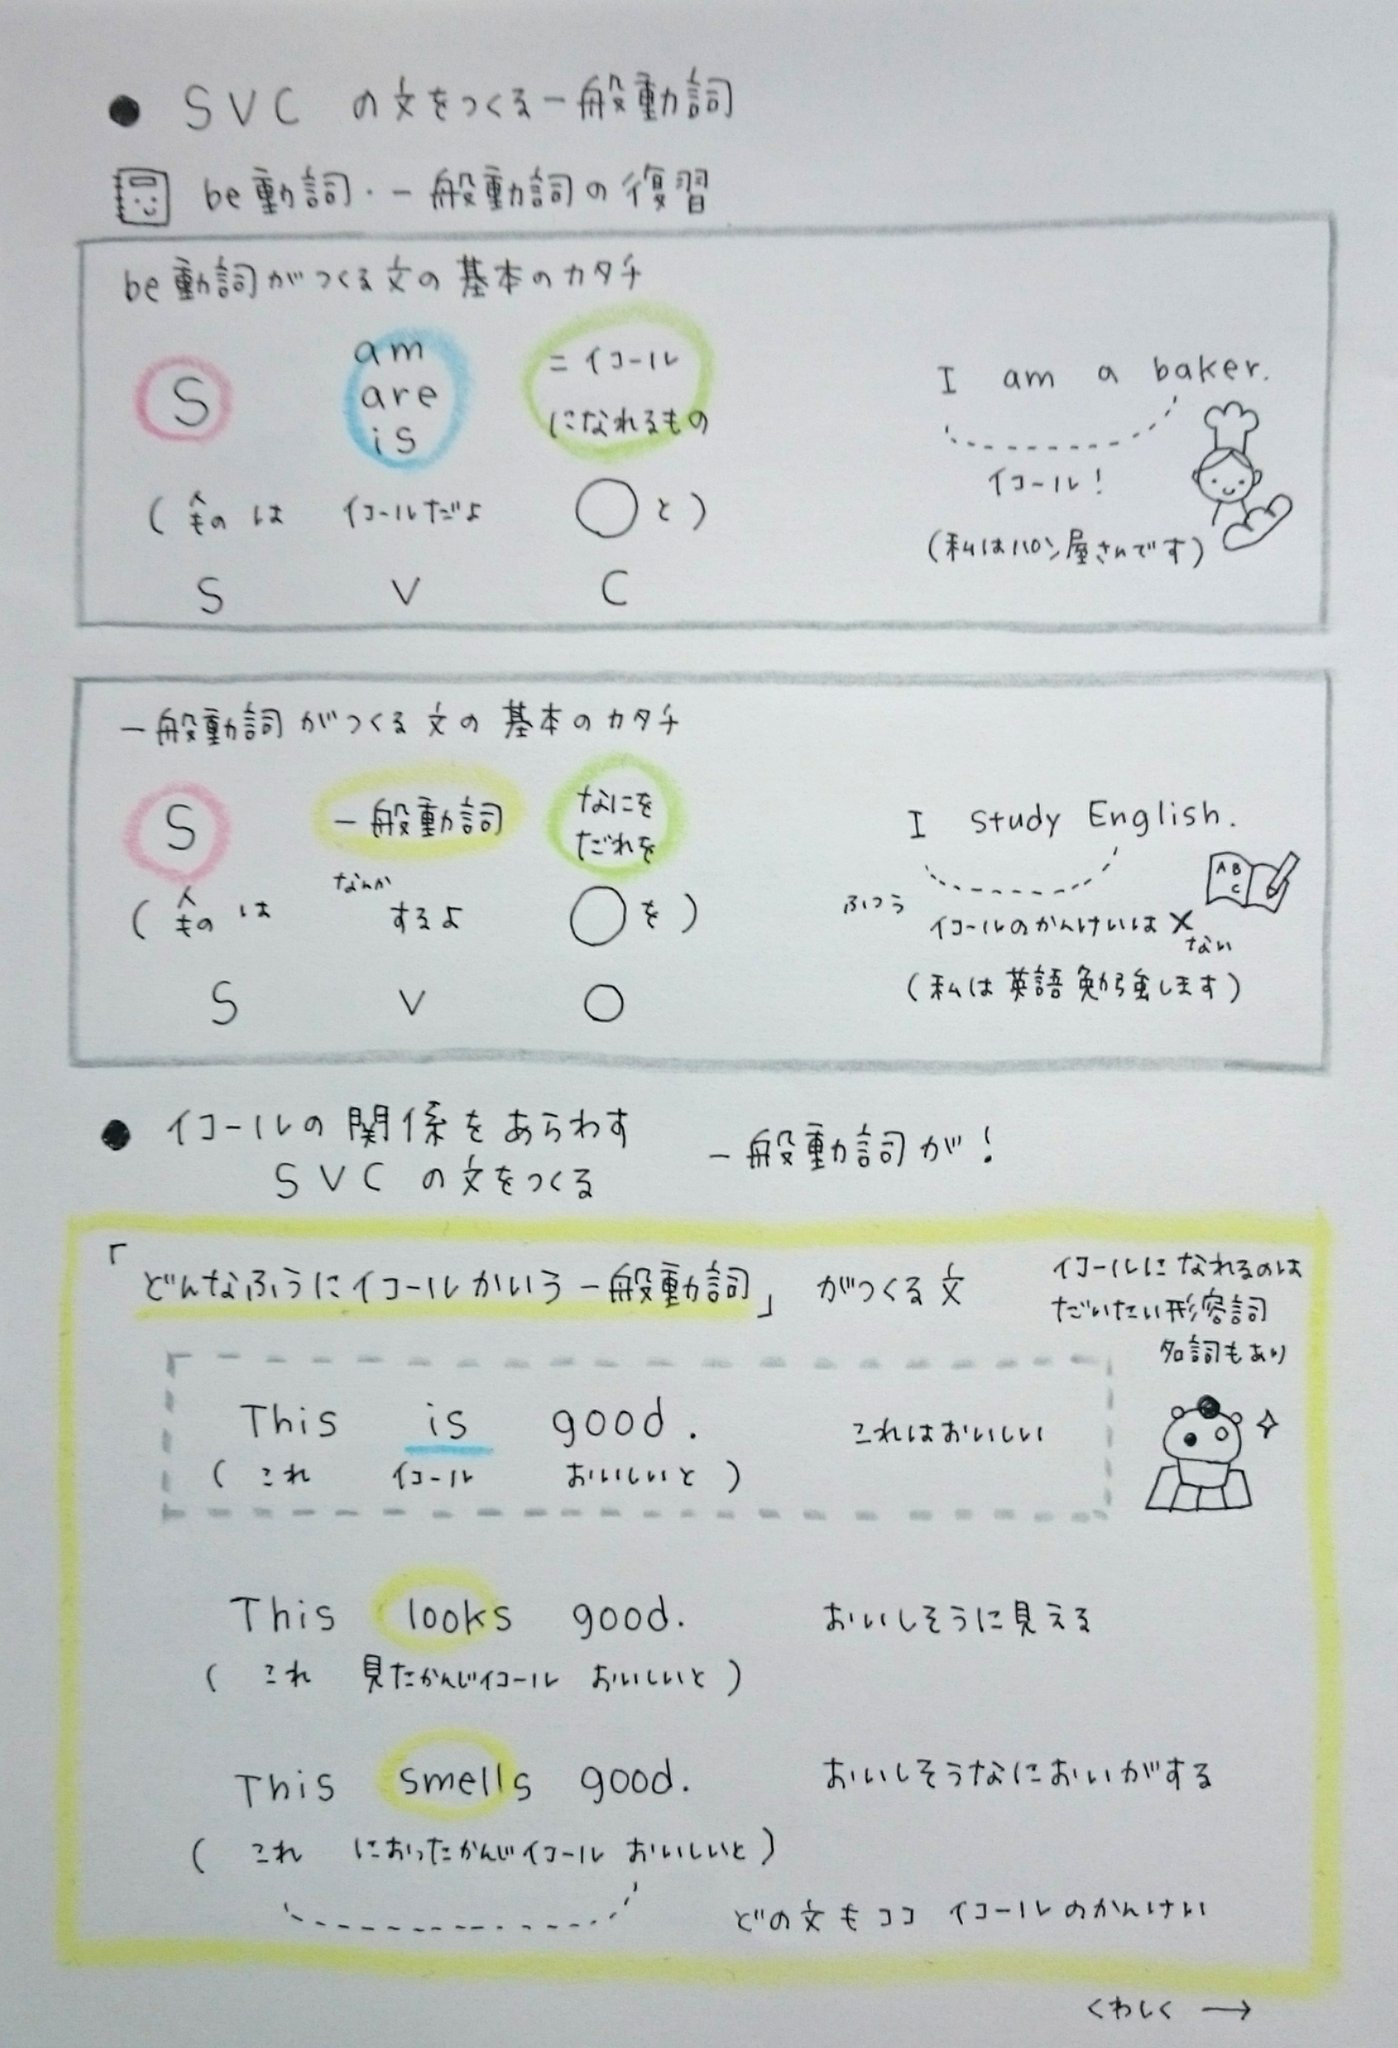 ● SVC の文をつくる一般動詞
be動詞・一般動詞の復習
be動詞がつくる文の基本のカタチ
S
am
are
is
=イコール
になれるもの
(人ものは イコールだよ ○と)
S V C
I am a baker.
イコール!
(私はパン屋さんです)
一般動詞がつくる文の基本のカタチ
S 一般動詞
なにを
だれを
(人ものは なんかするよ ○を)
S V O
I study English.
A B C
ふつう イコールのかんけいは×ない
(私は英語勉強します)
● イコールの関係をあらわす
SVC の文をつくる
一般動詞が!
「どんなふうにイコールかいう一般動詞」がつくる文
イコールになれるのは
だいたい形容詞
名詞もあり
This is good. これはおいしい
(これ イコール おいしいと)
This looks good. おいしそうに見える
(これ 見たかんじイコール おいしいと)
This smells good. おいしそうなにおいがする
(これ におったかんじイコール おいしいと)
どの文もココ イコールのかんけい
くわしく →